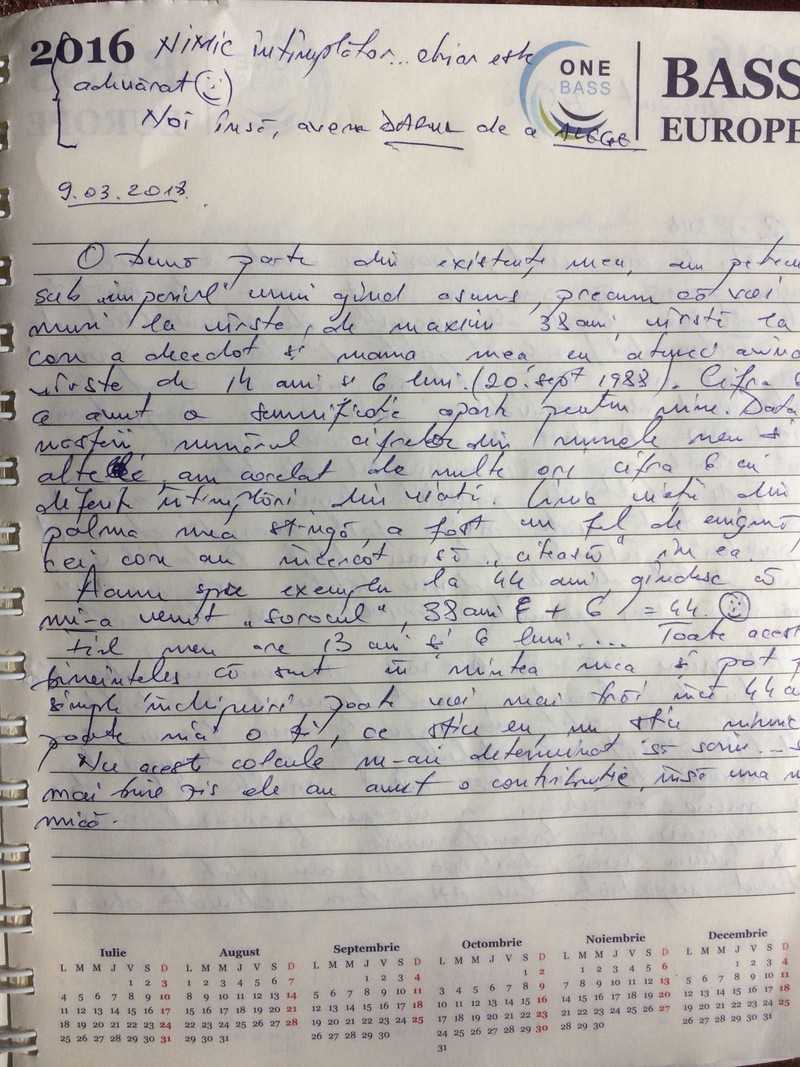 2016 NIMIC întîmplător... chiar este
adevărat
Noi însă, avem DARUL de a ALEGE
ONE
BASS
BASS
EUROPE
9.03.2018.
O bună parte din existența mea, am petrecu
sub "imperiul" unui gînd ascuns, precum că voi
muri la vîrsta, de maxim 38 ani, vîrstă la
care a decedat și mama mea eu atunci avînd
vîrsta de 14 ani și 6 luni. (20 sept 1988). Cifra 6
a avut o semnificație aparte pentru mine. Data
nașterii numărul cifrelor din numele meu și
altele, am corelat de multe ori cifra 6 cu
diferite întîmplări din viață. Linia vieții din
palma mea stîngă, a fost un fel de enigmă
cei care au încercat să "citească" în ea.
Acum spre exemplu la 44 ani, gîndesc că
mi-a venit "sorocul", 38 ani + 6 = 44.
fiul meu are 13 ani și 6 luni.... Toate acest
bineînțeles că sunt în mintea mea și pot
simple închipuiri poate voi mai trăi încă 44 a
poate nici o zi, ce știu eu, nu știu nimic
Nu aceste calcule m-au determinat să scriu...
mai bine zis ele au avut o contribuție, însă una
mică.
Iulie August Septembrie Octombrie Noiembrie Decembrie
L M M J V S D L M M J V S D L M M J V S D L M M J V S D L M M J V S D L M M J V S D
1 2 3 1 2 3 4 5 6 7 1 2 3 4 1 2 1 2 3 4 5 6 1 2 3 4
4 5 6 7 8 9 10 8 9 10 11 12 13 14 5 6 7 8 9 10 11 3 4 5 6 7 8 9 7 8 9 10 11 12 13 5 6 7 8 9 10 11
11 12 13 14 15 16 17 15 16 17 18 19 20 21 12 13 14 15 16 17 18 10 11 12 13 14 15 16 14 15 16 17 18 19 20 12 13 14 15 16 17 18
18 19 20 21 22 23 24 22 23 24 25 26 27 28 19 20 21 22 23 24 25 17 18 19 20 21 22 23 21 22 23 24 25 26 27 19 20 21 22 23 24 25
25 26 27 28 29 30 31 29 30 31 26 27 28 29 30 24 25 26 27 28 29 30 28 29 30 26 27 28 29 30 31
31